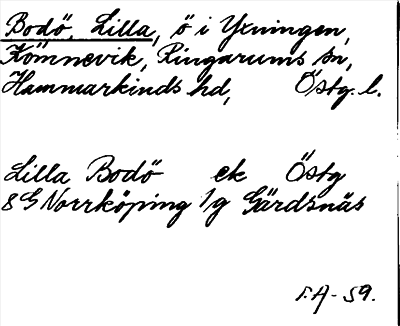 Bodö, Lilla, ö i Yxningen,
Kömnevik, Ringarums sn,
Hammarkinds hd, Östg. l.
Lilla Bodö ek Östg
8G Norrköping 1g Gärdsnäs
F.A-59.